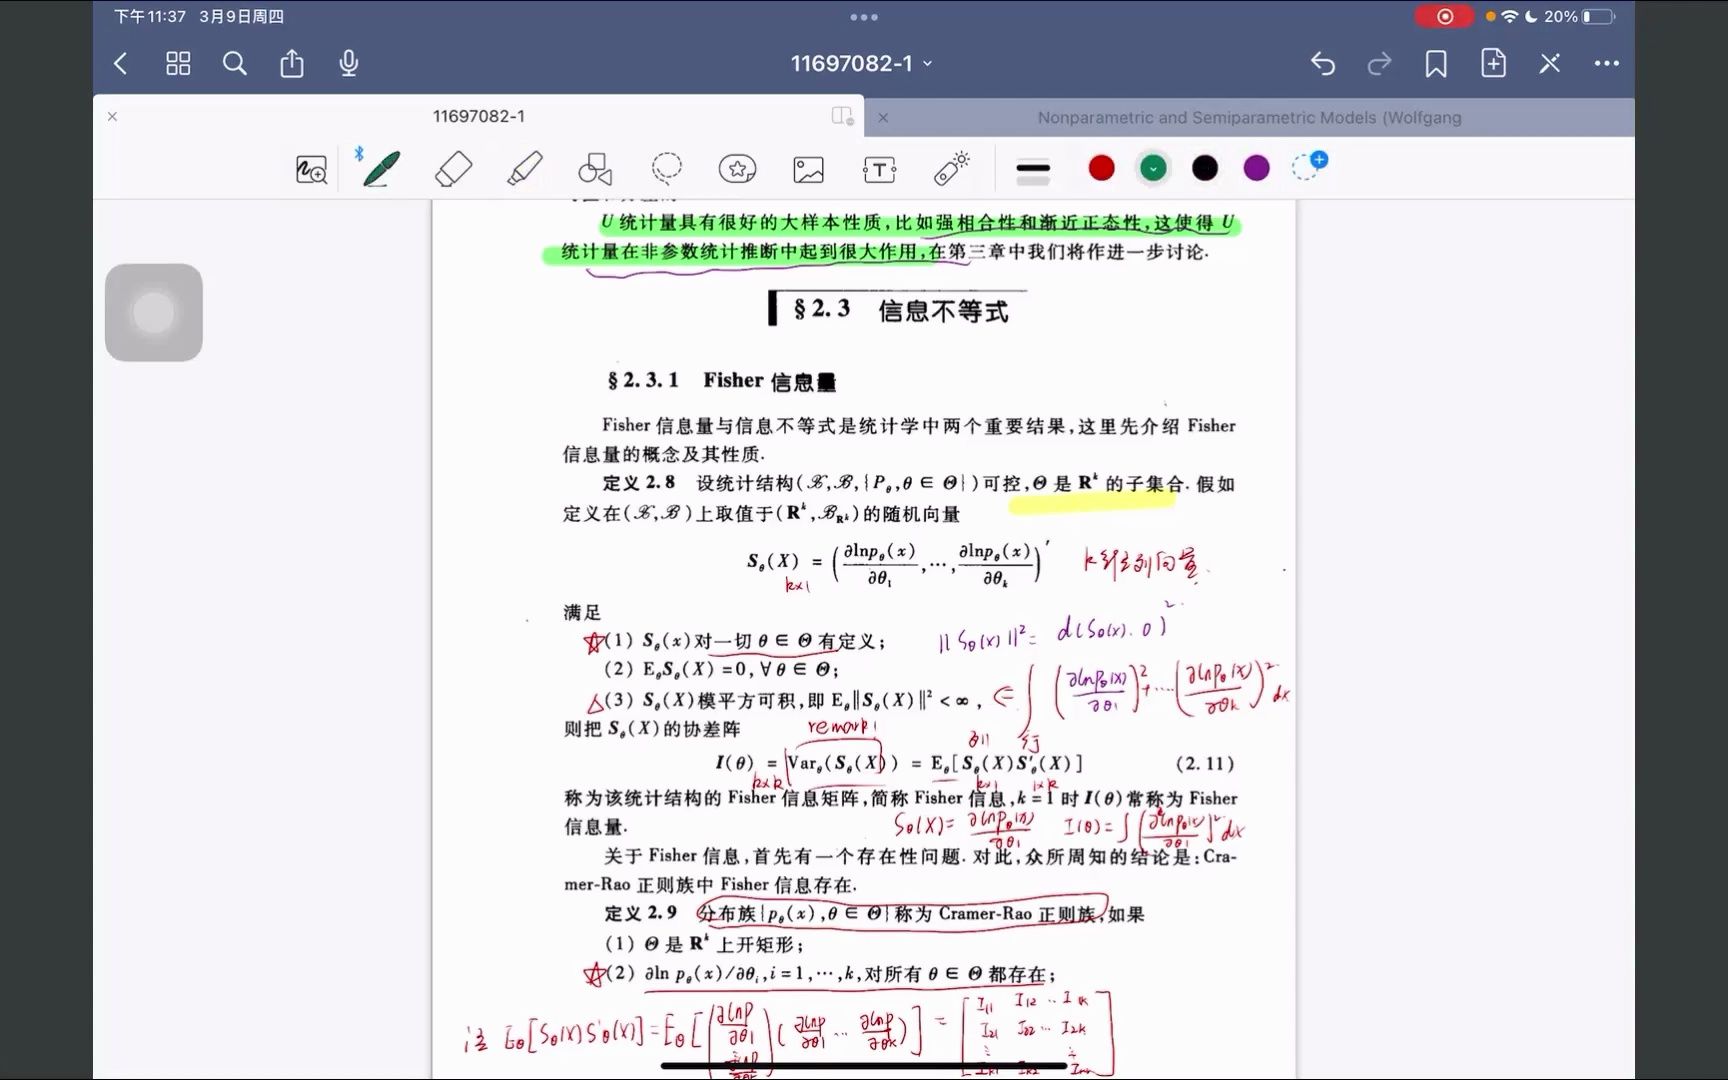 下午11:37 3月9日周四
20%
11697082-1
11697082-1
Nonparametric and Semiparametric Models (Wolfgang
U 统计量具有很好的大样本性质,比如强相合性和渐近正态性,这使得 U
统计量在非参数统计推断中起到很大作用,在第三章中我们将作进一步讨论.
§2.3 信息不等式
§2.3.1 Fisher 信息量
Fisher 信息量与信息不等式是统计学中两个重要结果,这里先介绍 Fisher
信息量的概念及其性质.
定义 2.8 设统计结构(𝒳,ℬ,{Pθ,θ∈Θ})可控,Θ 是 Rᵏ 的子集合. 假如
定义在(𝒳,ℬ)上取值于(Rᵏ,ℬ_Rᵏ)的随机向量
Sθ(X) = (∂lnpθ(x)/∂θ₁,⋯,∂lnpθ(x)/∂θₖ)′ k维列向量.
k×1
满足
(1) Sθ(x)对一切 θ∈Θ 有定义; ||Sθ(x)||²= d(Sθ(x).0)²
(2) EθSθ(X)=0,∀θ∈Θ;
(3) Sθ(X)模平方可积,即 Eθ‖Sθ(X)‖²<∞, ∈ ∫(∂lnpθ(x)/∂θ₁)²+⋯(∂lnpθ(x)/∂θk)²dx
则把 Sθ(X)的协差阵 remark!
列 行
I(θ) = Varθ(Sθ(X)) = Eθ[Sθ(X)S′θ(X)] (2.11)
k×k k×1 1×k
称为该统计结构的 Fisher 信息矩阵,简称 Fisher 信息,k=1 时 I(θ)常称为 Fisher
信息量. Sθ(X)= ∂lnpθ(x)/∂θ₁ I(θ)=∫[∂lnpθ(x)/∂θ₁]²dx
关于 Fisher 信息,首先有一个存在性问题. 对此,众所周知的结论是:Cra-
mer-Rao 正则族中 Fisher 信息存在.
定义 2.9 分布族{pθ(x),θ∈Θ}称为 Cramer-Rao 正则族,如果
(1) Θ 是 Rᵏ 上开矩形;
(2) ∂ln pθ(x)/∂θᵢ,i=1,⋯,k,对所有 θ∈Θ 都存在;
注 Eθ[Sθ(x)S'θ(x)]=Eθ[(∂lnp/∂θ₁ ⋮ )(∂lnp/∂θ₁ ⋯ ∂lnp/∂θk)] = [I₁₁ I₁₂ ⋯ I₁k
I₂₁ I₂₂ ⋯ I₂k